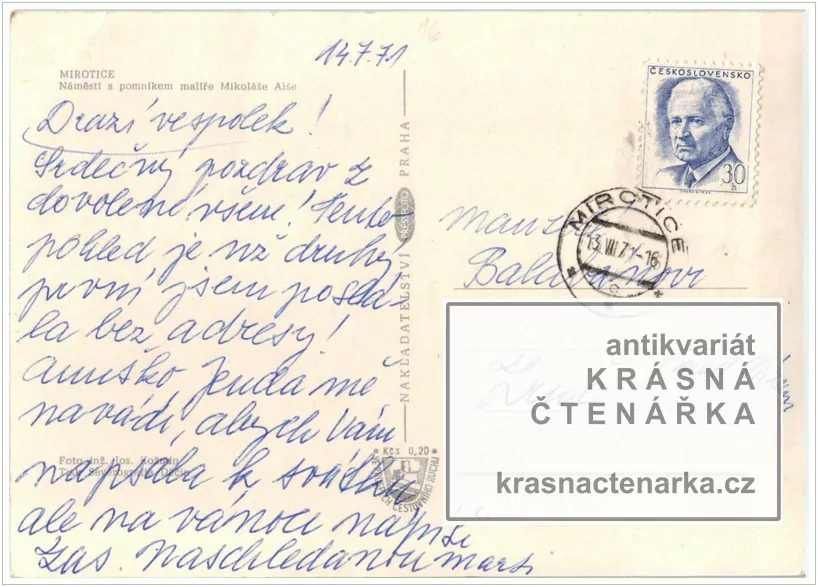 14.7.71
MIROTICE
Náměstí s pomníkem malíře Mikoláše Alše
Drazí vespolek!
Srdečný pozdrav z
dovolené všem! Tento
pohled je už druhý
první jsem posla-
la bez adresy!
Anuško Jenda mě
navádí, abych Vám
napsala k svátku
ale na vánoce napíše
zas. Naschledanou
Foto inž. Jos.
NAKLADATELSTVÍ PRESSFOTO PRAHA
Kčs 0,20
CESTOVNÍHO RUCHU
16
ČESKOSLOVENSKO
30
h
MIROTICE
13.VIII.71-16
c
antikvariát
KRÁSNÁ
ČTENÁŘKA
krasnactenarka.cz